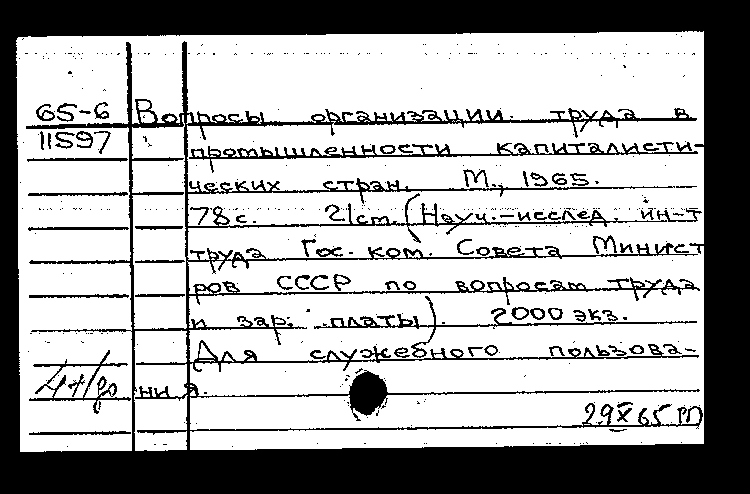 65-6 Вопросы организации труда в
11597 промышленности капиталисти-
ческих стран. М., 1965.
78с. 21см. (Науч.-исслед. ин-т
труда Гос. ком. Совета Минист
ров СССР по вопросам труда
и зар. платы). 2000 экз.
Для служебного пользова-
ния.
29 X 65